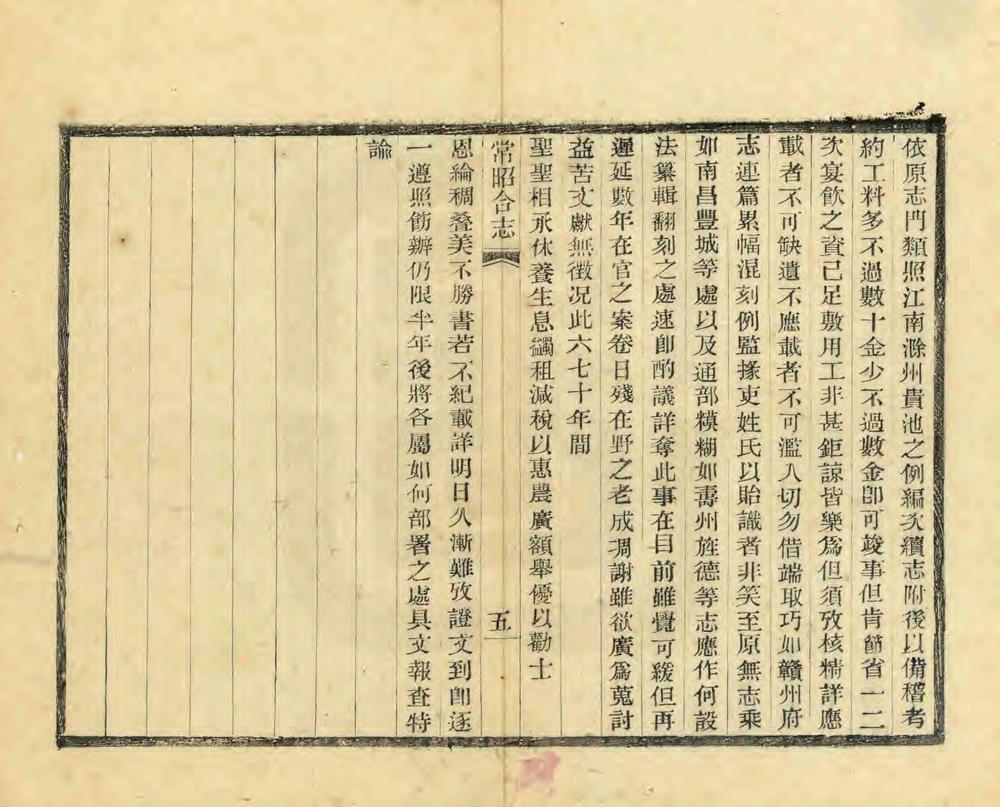 依原志門類照江南滁州貴池之例編次續志附後以備稽考
約工料多不過數十金少不過數金卽可竣事但肯節省一二
次宴飲之資已足敷用工非甚鉅諒皆樂爲但須攷核精詳應
載者不可缺遺不應載者不可濫入切勿借端取巧如贛州府
志連篇累幅混刻例監掾吏姓氏以貽識者非笑至原無志乘
如南昌豐城等處以及通部糢糊如壽州旌德等志應作何設
法纂輯翻刻之處速卽酌議詳奪此事在目前雖覺可緩但再
遲延數年在官之案卷日殘在野之老成凋謝雖欲廣爲蒐討
益苦文獻無徵况此六七十年間
聖聖相承休養生息蠲租減稅以惠農廣額舉優以勸士
常昭合志 五
恩綸稠叠美不勝書若不紀載詳明日久漸難攷證文到卽逐
一遵照飭辦仍限半年後將各屬如何部署之處具文報查特
諭